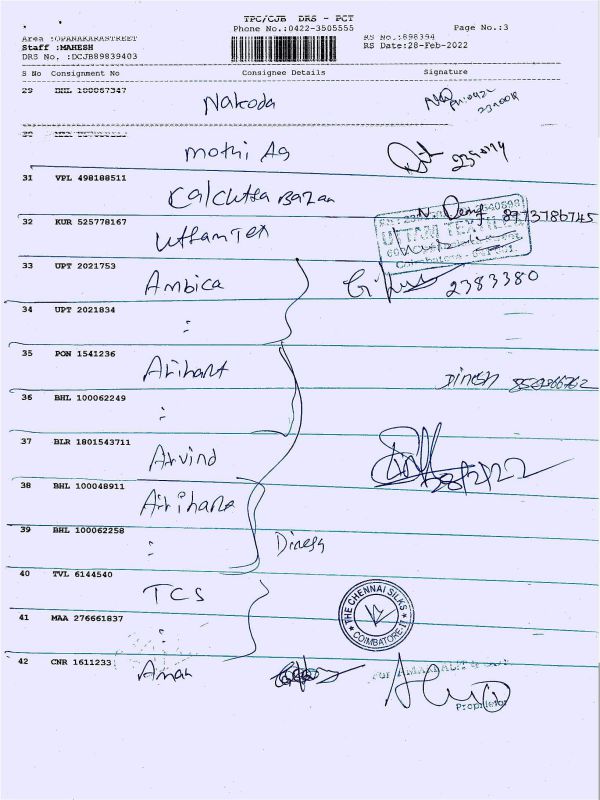 TPC/CJB DRS - PCT
Phone No.:0422-3505555
Page No.:3
Area :OPANAKARASTREET
Staff :MAHESH
DRS No. :DCJB89839403
RS No.:898394
RS Date:28-Feb-2022
S No Consignment No Consignee Details Signature
29 BHL 100067347 Nakoda
30 Mothi Ag
31 VPL 498188511 Calcutta Bazaa
N. 8973786745
32 KUR 525778167 Uttam Tex
UTTAM TEXTILE
33 UPT 2021753 Ambica 2383380
34 UPT 2021834 :
35 PON 1541236 Arihant Dinesh
36 BHL 100062249 :
37 BLR 1801543711 Arvind 28/2/22
38 BHL 100048911 Arihant
39 BHL 100062258 : Dinesh
40 TVL 6144540 TCS
THE CHENNAI SILKS
COIMBATORE-1
41 MAA 276661837 :
42 CNR 1611233 Aman
Proprietor